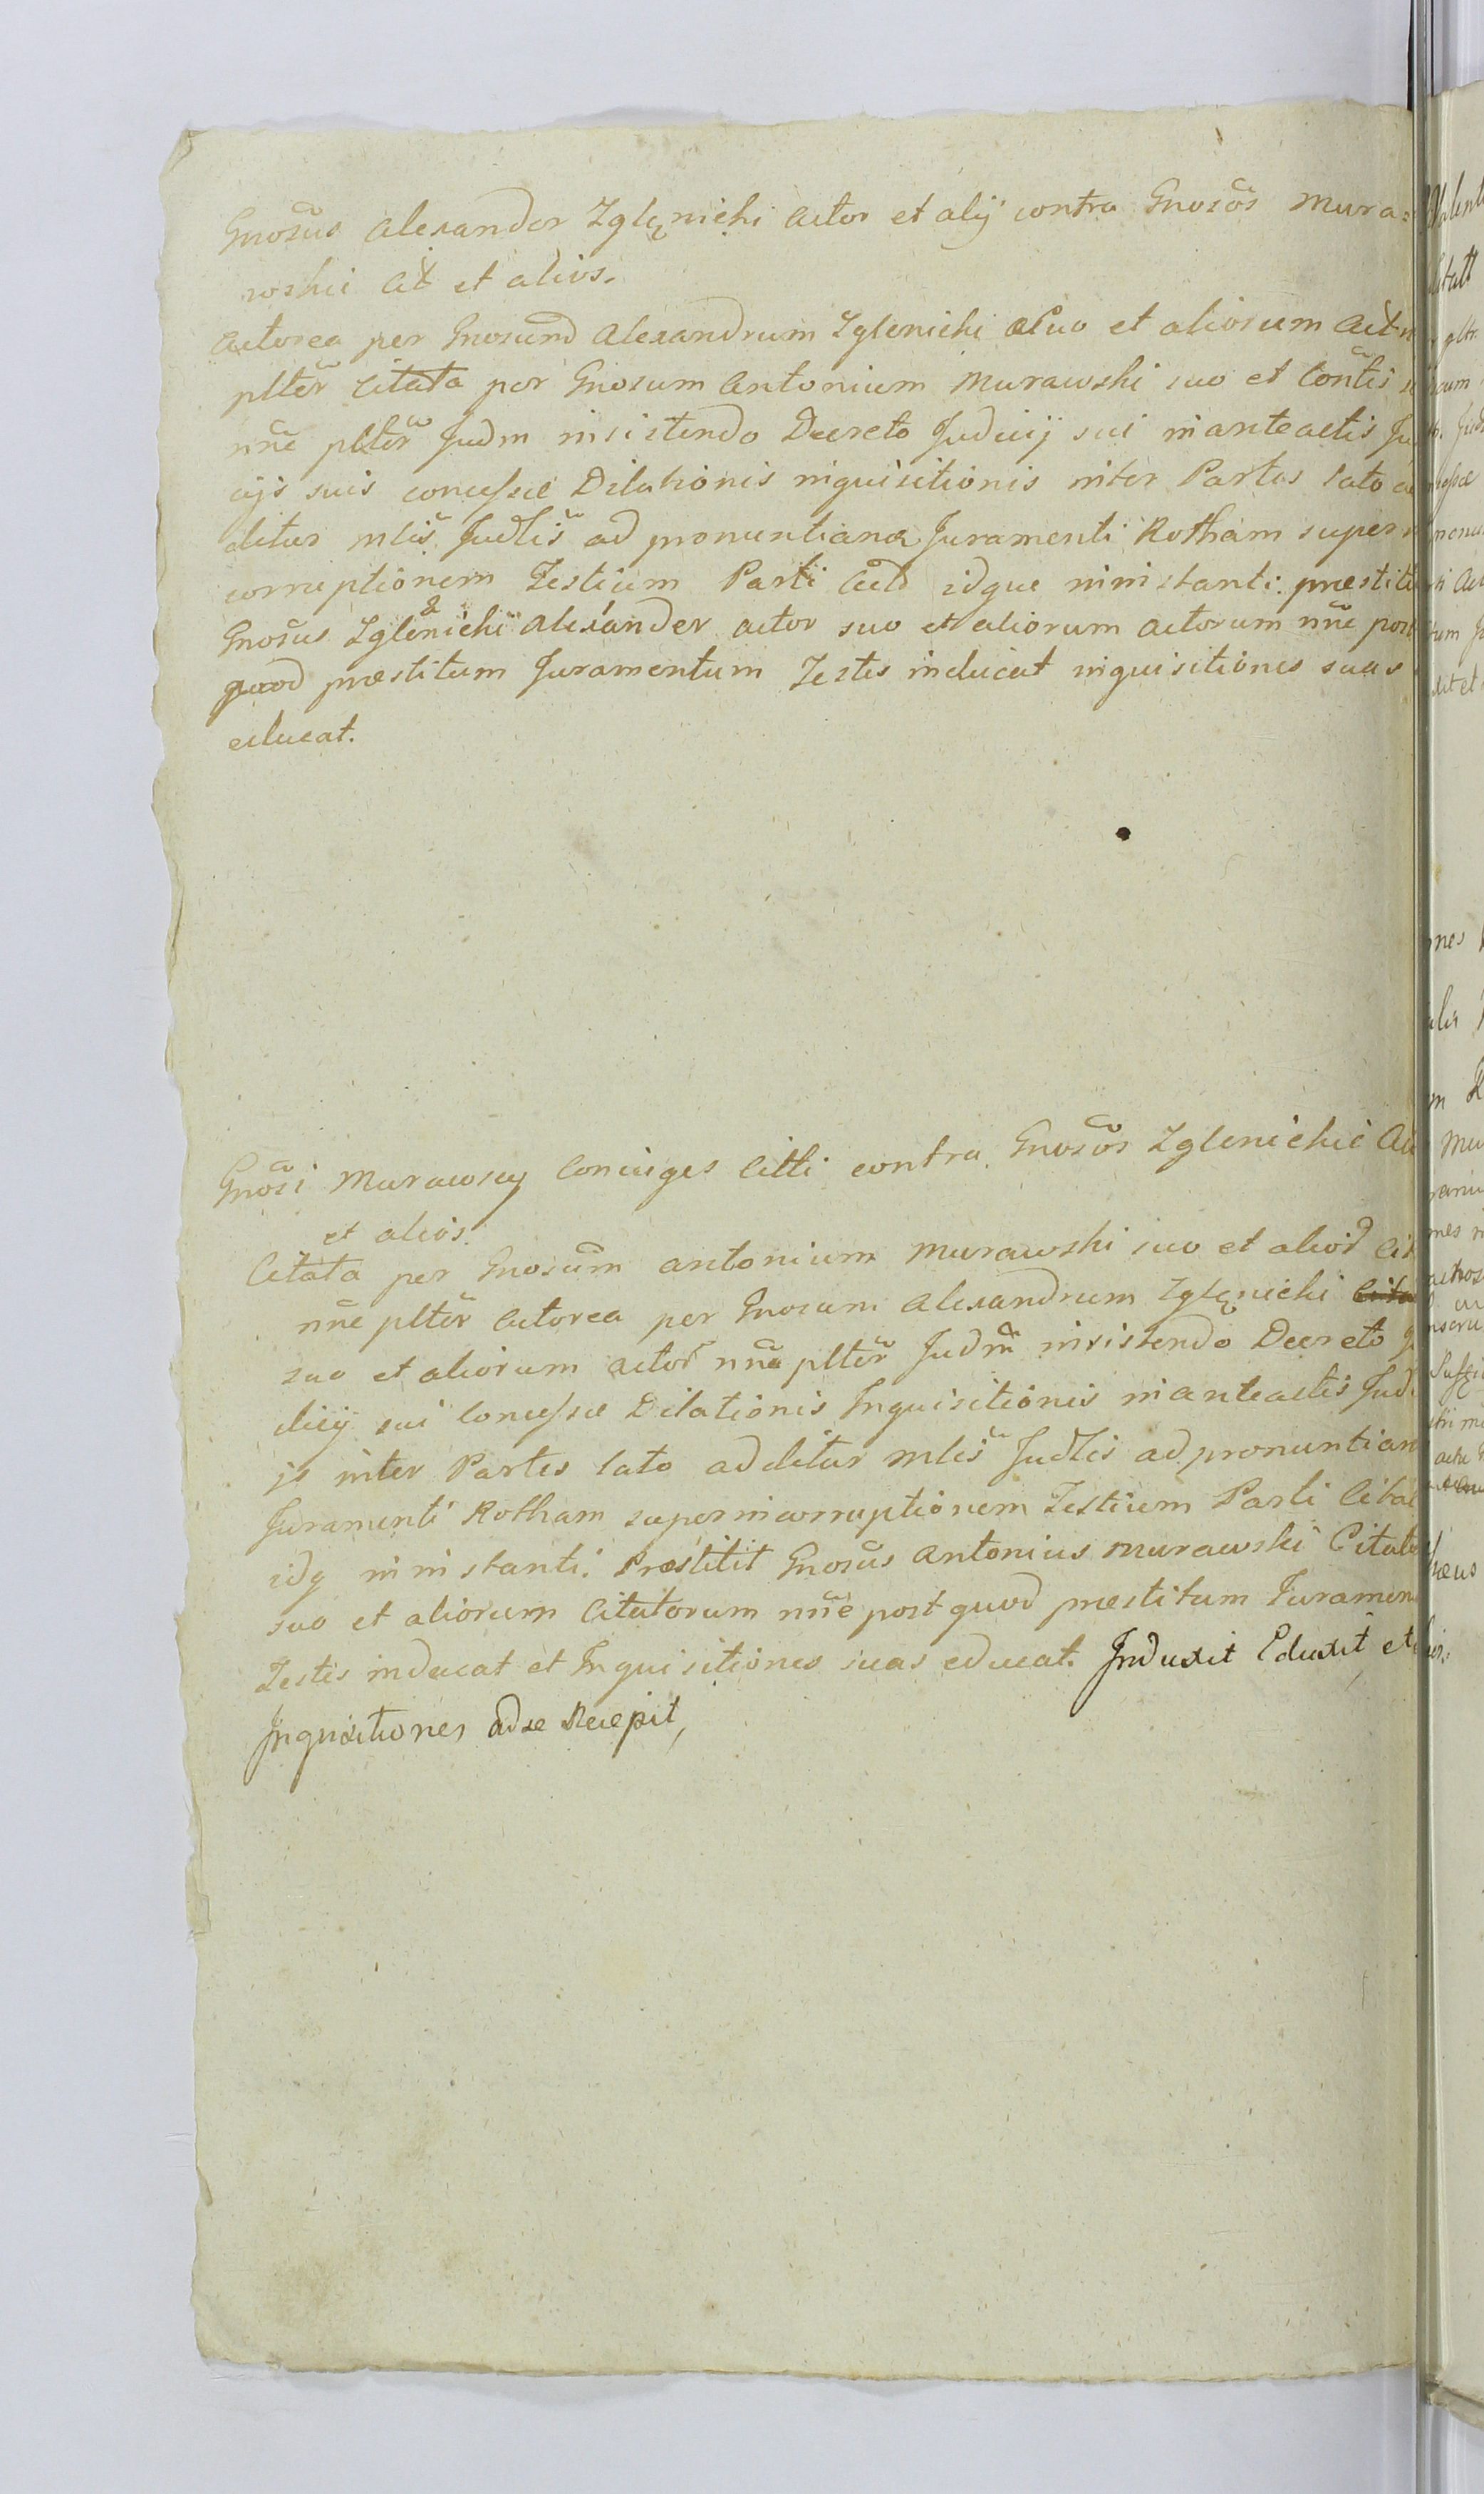 Gnosus Alexander Zglęnicki Actor et alij contra Gnosos Mura=
wskie Ct et alios.
Actorea per Gnosum Alexandrum Zglenicki suo et aliorum Act
plter Citata per Gnosum Antonium Murawski suo et Contis
nne plter Judm insistendo Decreto Judicij sui in anteactis Ju
cijs suis concessae Dilationis inquisitionis inter Partes lato ad
ditur mlis Judlis ad pronuntiand Juramenti Rotham super in
corruptionem Testium Parti Act idque in instanti: praestiti
Gnosus Zglenicki Alexander actor suo et aliorum actorum nne post
quod praestitum Juramentum Testes inducat inquisitiones suas
educat.
Gnosi Murawscy Coniuges Citti contra Gnosos Zglenickie Ac
et alios.
Citata per Gnosum Antonium Murawski suo et alior Cit
nne plter Actorea per Gnosum Alexandrum Zglęnicki
suo et aliorum actor nne plter Judm insistendo Decreto Ju
dicij sui Concessae Dilationis Inquisitionis in anteactis Judi
js inter Partes lato additur mlis Judlis ad pronuntian
Juramenti Rotham super incorruptionem Testium Parti Citat
idq in instanti: Praestitit Gnosus Antonius Murawski Citat
suo et aliorum Citatorum nne post quod praestitum Juramen
Testes inducat et Inquisitiones suas educat. Induxit Eduxit et
Inquisitiones ad se Recepit,